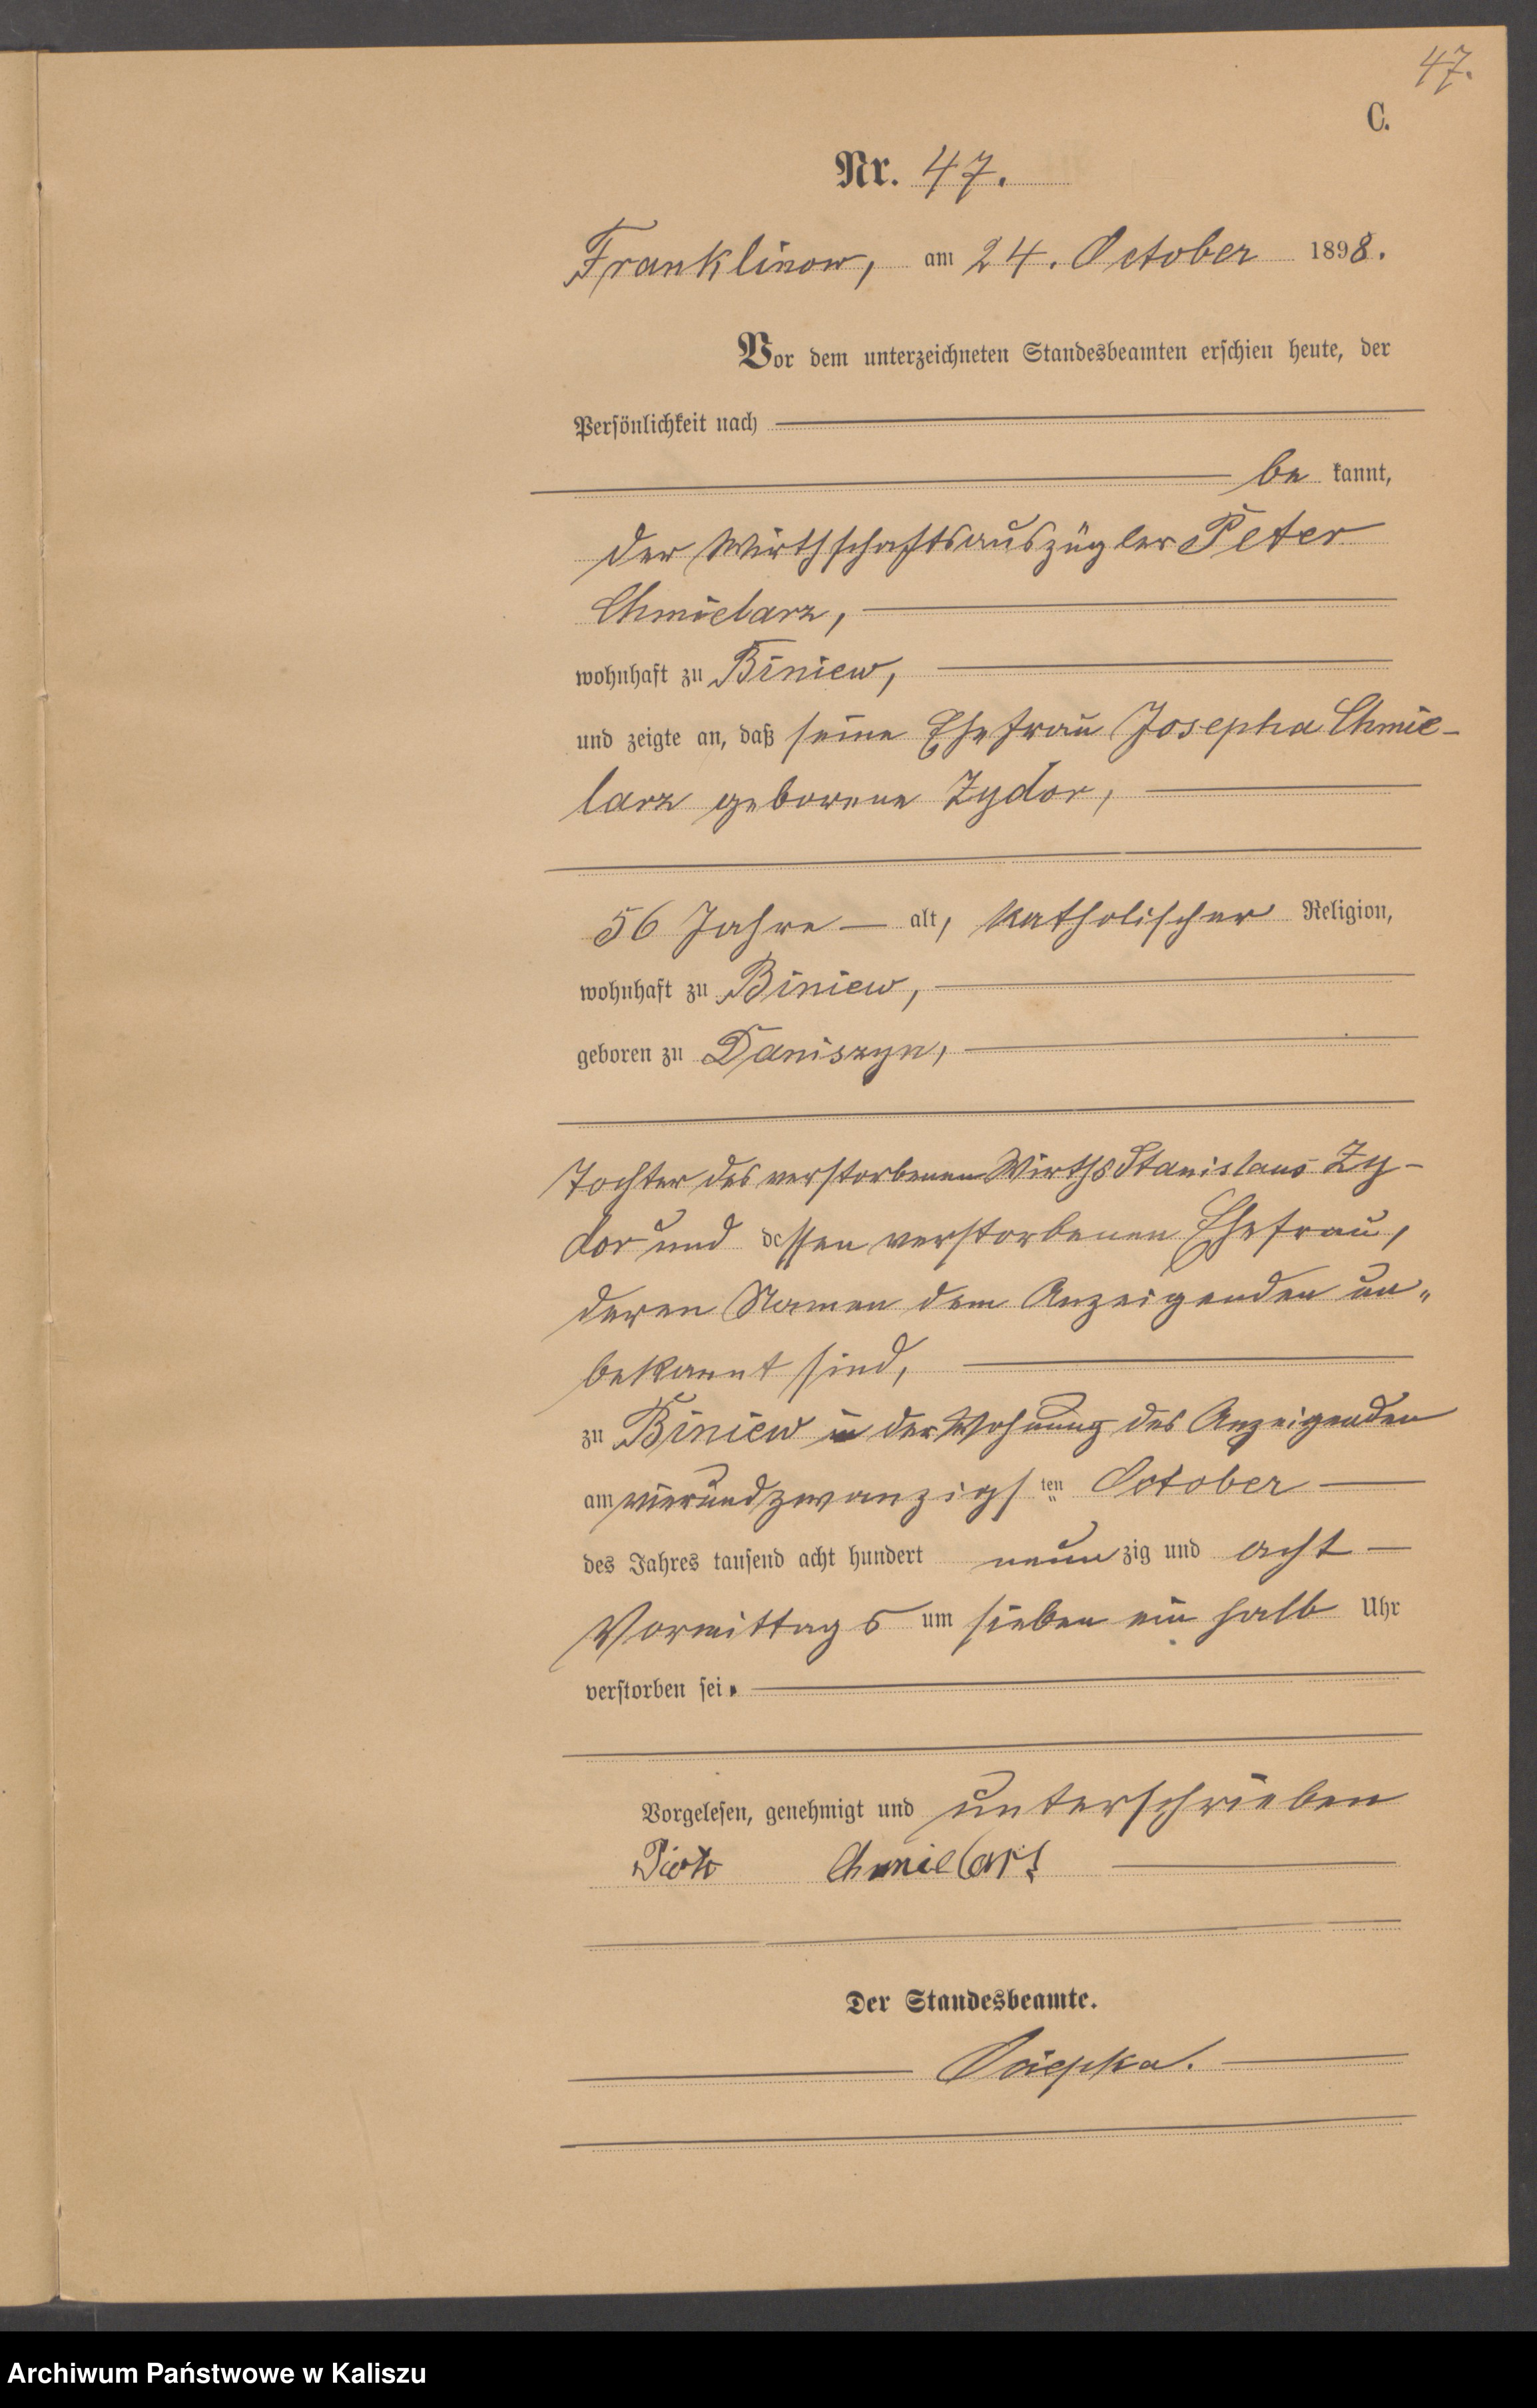 47.
C.
Nr. 47.
Franklinow, am 24. October 1898.
Vor dem unterzeichneten Standesbeamten erschien heute, der
Persönlichkeit nach
be kannt,
der Wirthschaftsauszügler Peter
Chmielarz,
wohnhaft zu Biniew,
und zeigte an, daß seine Ehefrau Josepha Chmie-
larz geborene Zydor,
56 Jahre alt, katholischer Religion,
wohnhaft zu Biniew,
geboren zu Daniszyn,
Tochter des verstorbenen Wirths Stanislaus Zy-
dor und dessen verstorbenen Ehefrau,
deren Namen dem Anzeigenden un„
bekannt sind,
zu Biniew in der Wohnung des Anzeigenden
am vierundzwanzigsten October
des Jahres tausend acht hundert neunzig und acht
Vormittags um sieben ein halb Uhr
verstorben sei.
Vorgelesen, genehmigt und unterschrieben
Piotr Chmielarz
Der Standesbeamte.
Archiwum Państwowe w Kaliszu